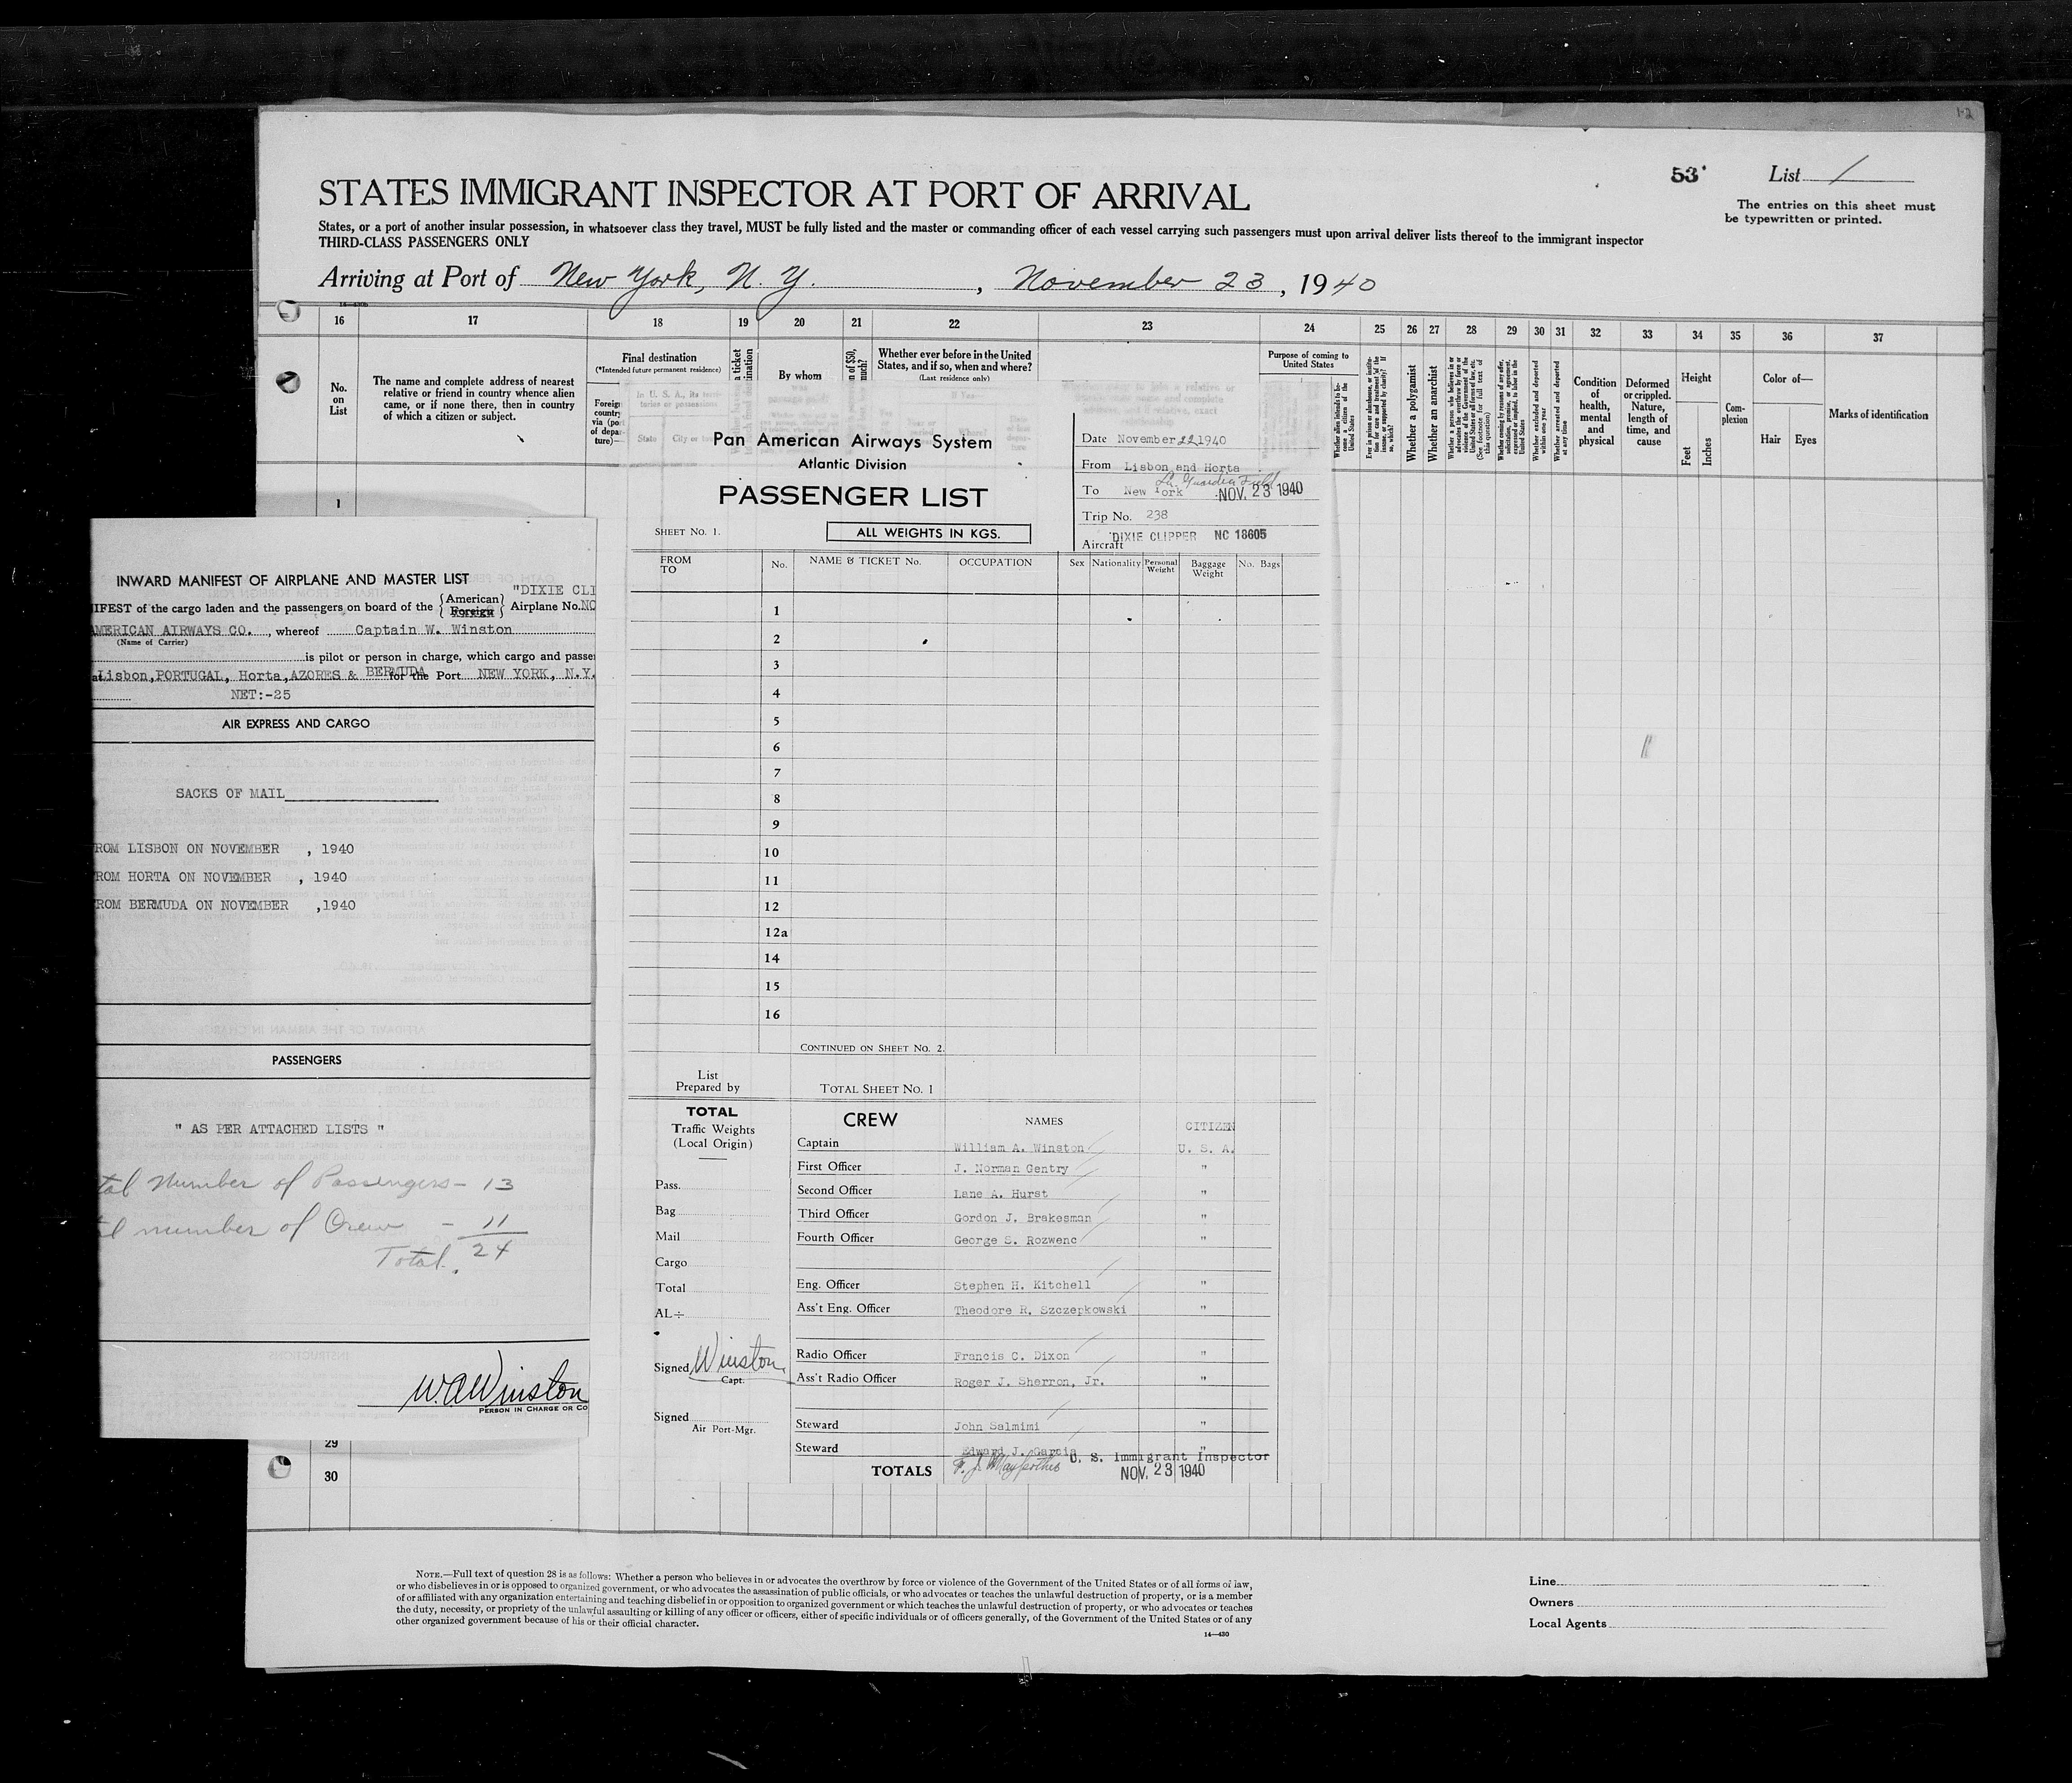 1-2
53
List 1
The entries on this sheet must
be typewritten or printed.
STATES IMMIGRANT INSPECTOR AT PORT OF ARRIVAL
States, or a port of another insular possession, in whatsoever class they travel, MUST be fully listed and the master or commanding officer of each vessel carrying such passengers must upon arrival deliver lists thereof to the immigrant inspector
THIRD-CLASS PASSENGERS ONLY
Arriving at Port of New York, N. Y., November 23, 1940
16 17 18 19 20 21 22 23 24 25 26 27 28 29 30 31 32 33 34 35 36 37
No.
on
List
The name and complete address of nearest
relative or friend in country whence alien
came, or if none there, then in country
of which a citizen or subject.
Final destination
(*Intended future permanent residence)
Foreign
country
via (port
of depar-
ture)—
In U. S. A., its terri-
tories or possessions
State City or town
By whom
Whether ever before in the United
States, and if so, when and where?
(Last residence only)
Purpose of coming to
United States
Whether alien intends to be-
come a citizen of the
United States
Whether a polygamist
Whether an anarchist
Whether excluded and deported
within one year
Whether arrested and deported
at any time
Condition
of
health,
mental
and
physical
Deformed
or crippled.
Nature,
length of
time, and
cause
Height
Feet
Inches
Com-
plexion
Color of—
Hair Eyes
Marks of identification
1
Pan American Airways System
Atlantic Division
PASSENGER LIST
SHEET No. 1.
ALL WEIGHTS IN KGS.
Date November 22, 1940
From Lisbon and Horta
La Guardia Field
To New York NOV. 23 1940
Trip No. 238
Aircraft DIXIE CLIPPER NC 18605
FROM
TO
No.
NAME & TICKET No.
OCCUPATION
Sex
Nationality
Personal
Weight
Baggage
Weight
No. Bags
1
2
3
4
5
6
7
8
9
10
11
12
12a
14
15
16
CONTINUED ON SHEET No. 2.
List
Prepared by
TOTAL SHEET No. 1
TOTAL
Traffic Weights
(Local Origin)
Pass.
Bag
Mail
Cargo
Total
AL÷
Signed Winston
Capt.
Signed
Air Port-Mgr.
CREW NAMES CITIZEN
Captain William A. Winston U. S. A.
First Officer J. Norman Gentry "
Second Officer Lane A. Hurst "
Third Officer Gordon J. Brakesman "
Fourth Officer George S. Rozwenc "
Eng. Officer Stephen H. Kitchell "
Ass't Eng. Officer Theodore R. Szczepkowski "
Radio Officer Francis C. Dixon "
Ass't Radio Officer Roger J. Sherron, Jr. "
Steward John Salmimi "
Steward Edward J. Garcia "
U. S. Immigrant Inspector
TOTALS NOV. 23 1940
INWARD MANIFEST OF AIRPLANE AND MASTER LIST
"DIXIE CLI
IFEST of the cargo laden and the passengers on board of the {American Foreign} Airplane No. NC
AMERICAN AIRWAYS CO., whereof Captain W. Winston
(Name of Carrier)
is pilot or person in charge, which cargo and passe
at Lisbon,PORTUGAL, Horta,AZORES & BERMUDA for the Port NEW YORK, N.Y.
NET:-25
AIR EXPRESS AND CARGO
SACKS OF MAIL
ROM LISBON ON NOVEMBER , 1940
ROM HORTA ON NOVEMBER , 1940
ROM BERMUDA ON NOVEMBER ,1940
PASSENGERS
" AS PER ATTACHED LISTS "
tal Number of Passengers - 13
l number of Crew - 11
Total. 24
W.A.Winston
PERSON IN CHARGE OR CO
29
30
NOTE.—Full text of question 28 is as follows: Whether a person who believes in or advocates the overthrow by force or violence of the Government of the United States or of all forms of law,
or who disbelieves in or is opposed to organized government, or who advocates the assassination of public officials, or who advocates or teaches the unlawful destruction of property, or is a member
of or affiliated with any organization entertaining and teaching disbelief in or opposition to organized government or which teaches the unlawful destruction of property, or who advocates or teaches
the duty, necessity, or propriety of the unlawful assaulting or killing of any officer or officers, either of specific individuals or of officers generally, of the Government of the United States or of any
other organized government because of his or their official character.
14—430
Line
Owners
Local Agents